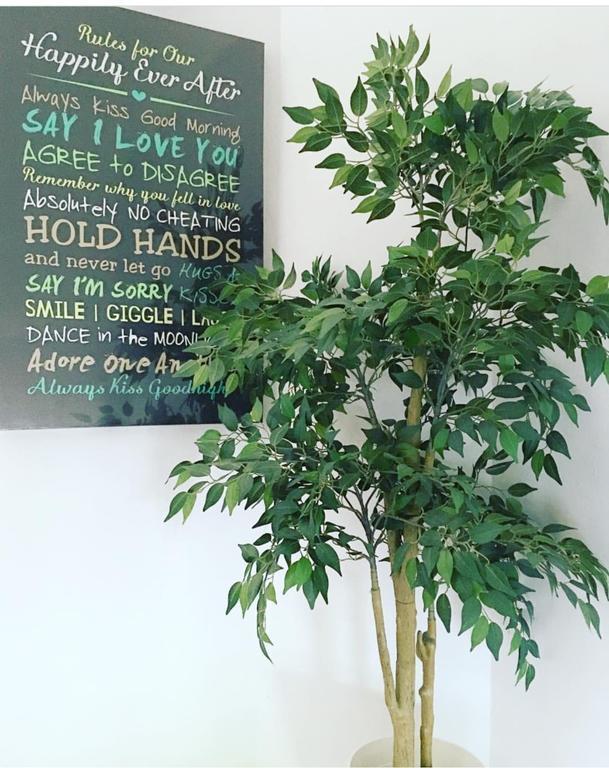 Rules for Our
Happily Ever After
Always Kiss Good Morning
SAY I LOVE YOU
AGREE to DISAGREE
Remember why you fell in love
Absolutely NO CHEATING
HOLD HANDS
and never let go HUGS &
SAY I'M SORRY
SMILE | GIGGLE |
DANCE in the
Adore One
Always Kiss Goodnight